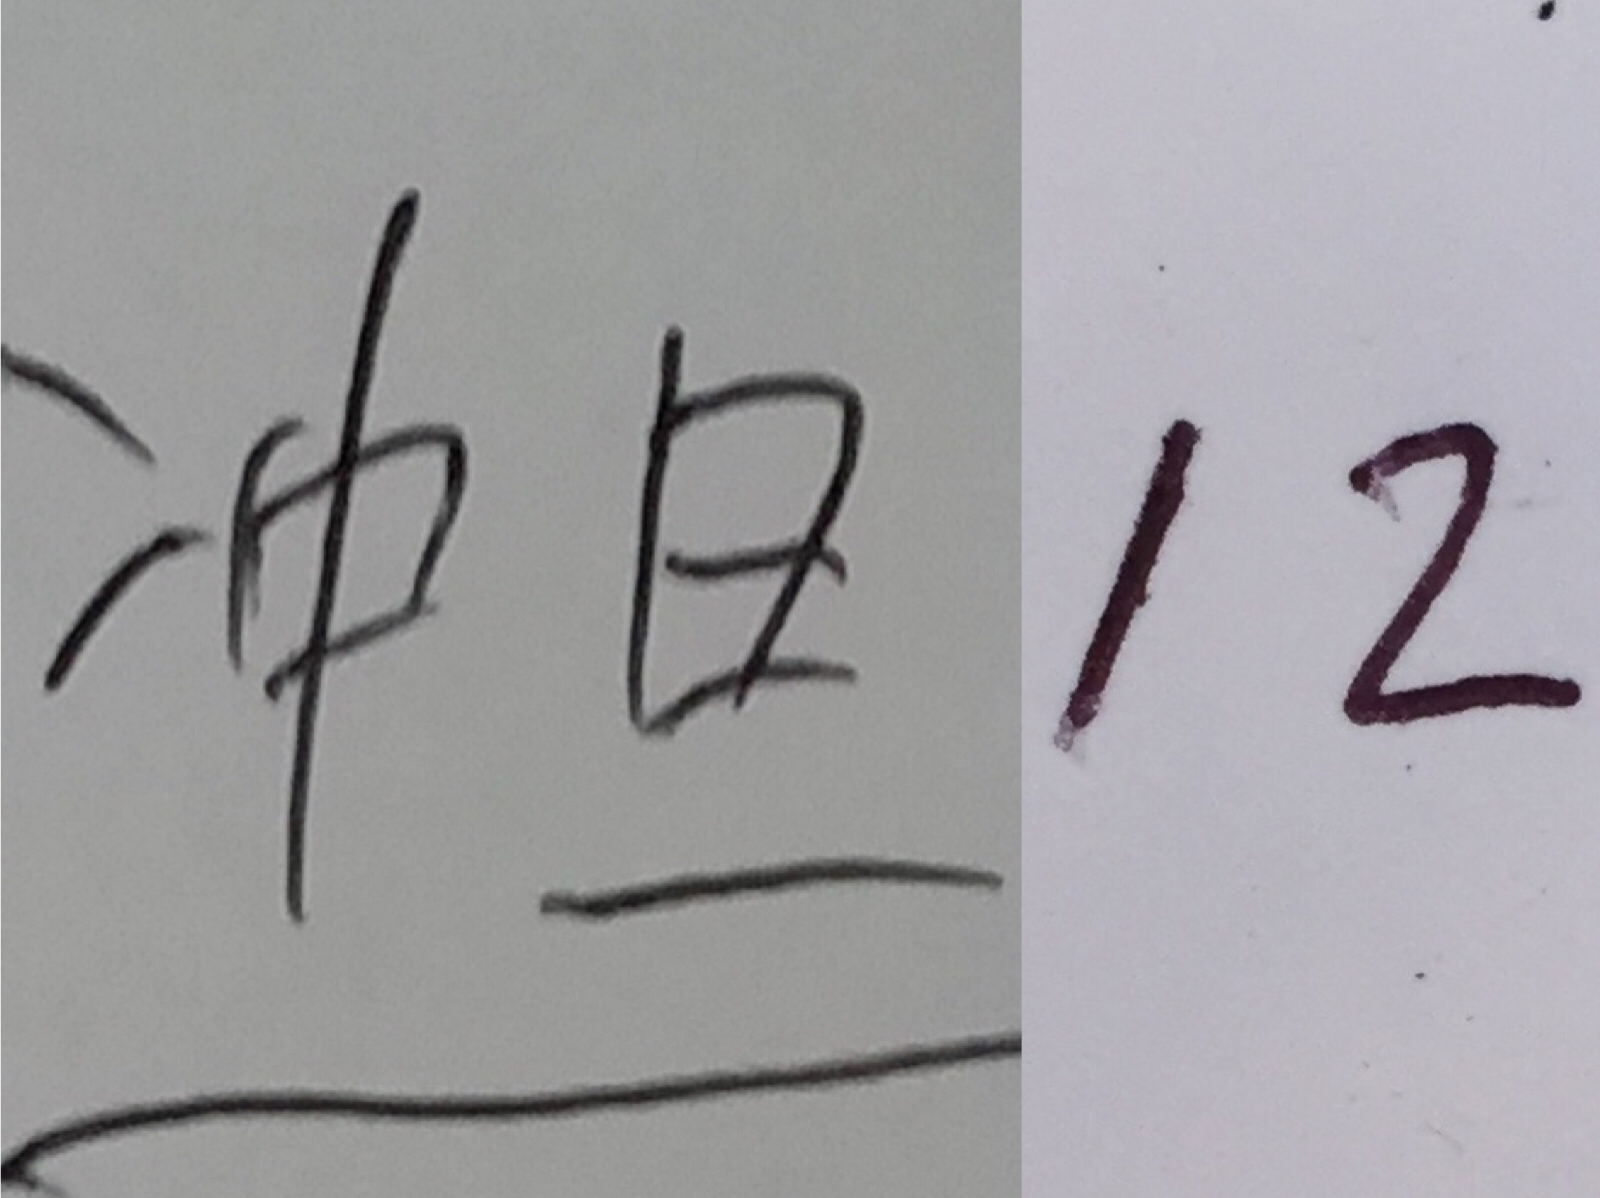 冲旦12